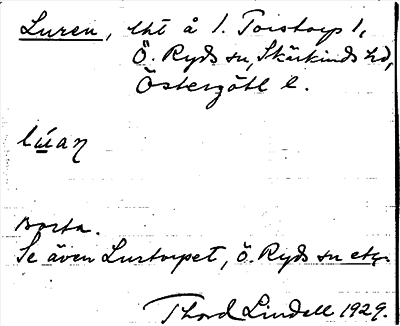 Luren, lht å 1. Torstorp 1,
Ö. Ryds sn, Skärkinds hd,
Östergötl l.
lúaɳ
Borta.
Se även Lustorpet, Ö. Ryds sn etc.
Thord Lindell 1929.